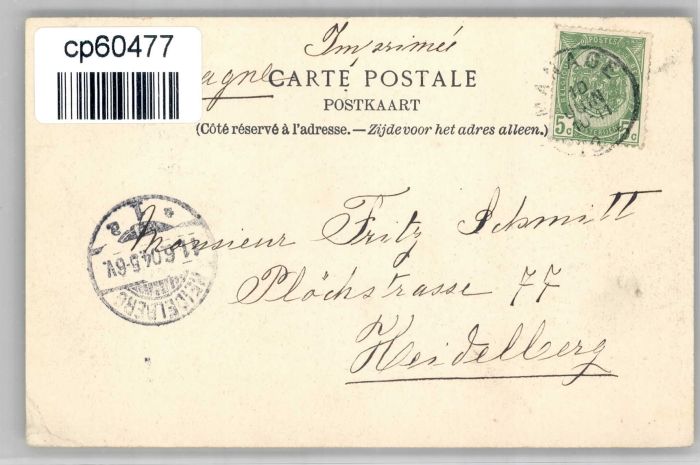 cp60477
Imprimé
CARTE POSTALE
POSTKAART
(Côté réservé à l'adresse. — Zijde voor het adres alleen.)
POSTES
5c 5c
MANAGE
10
JUIN
HEIDELBERG
11.6.04.5-6V.
1
a
Monsieur Fritz Schmitt
Plöchstrasse 77
Heidelberg